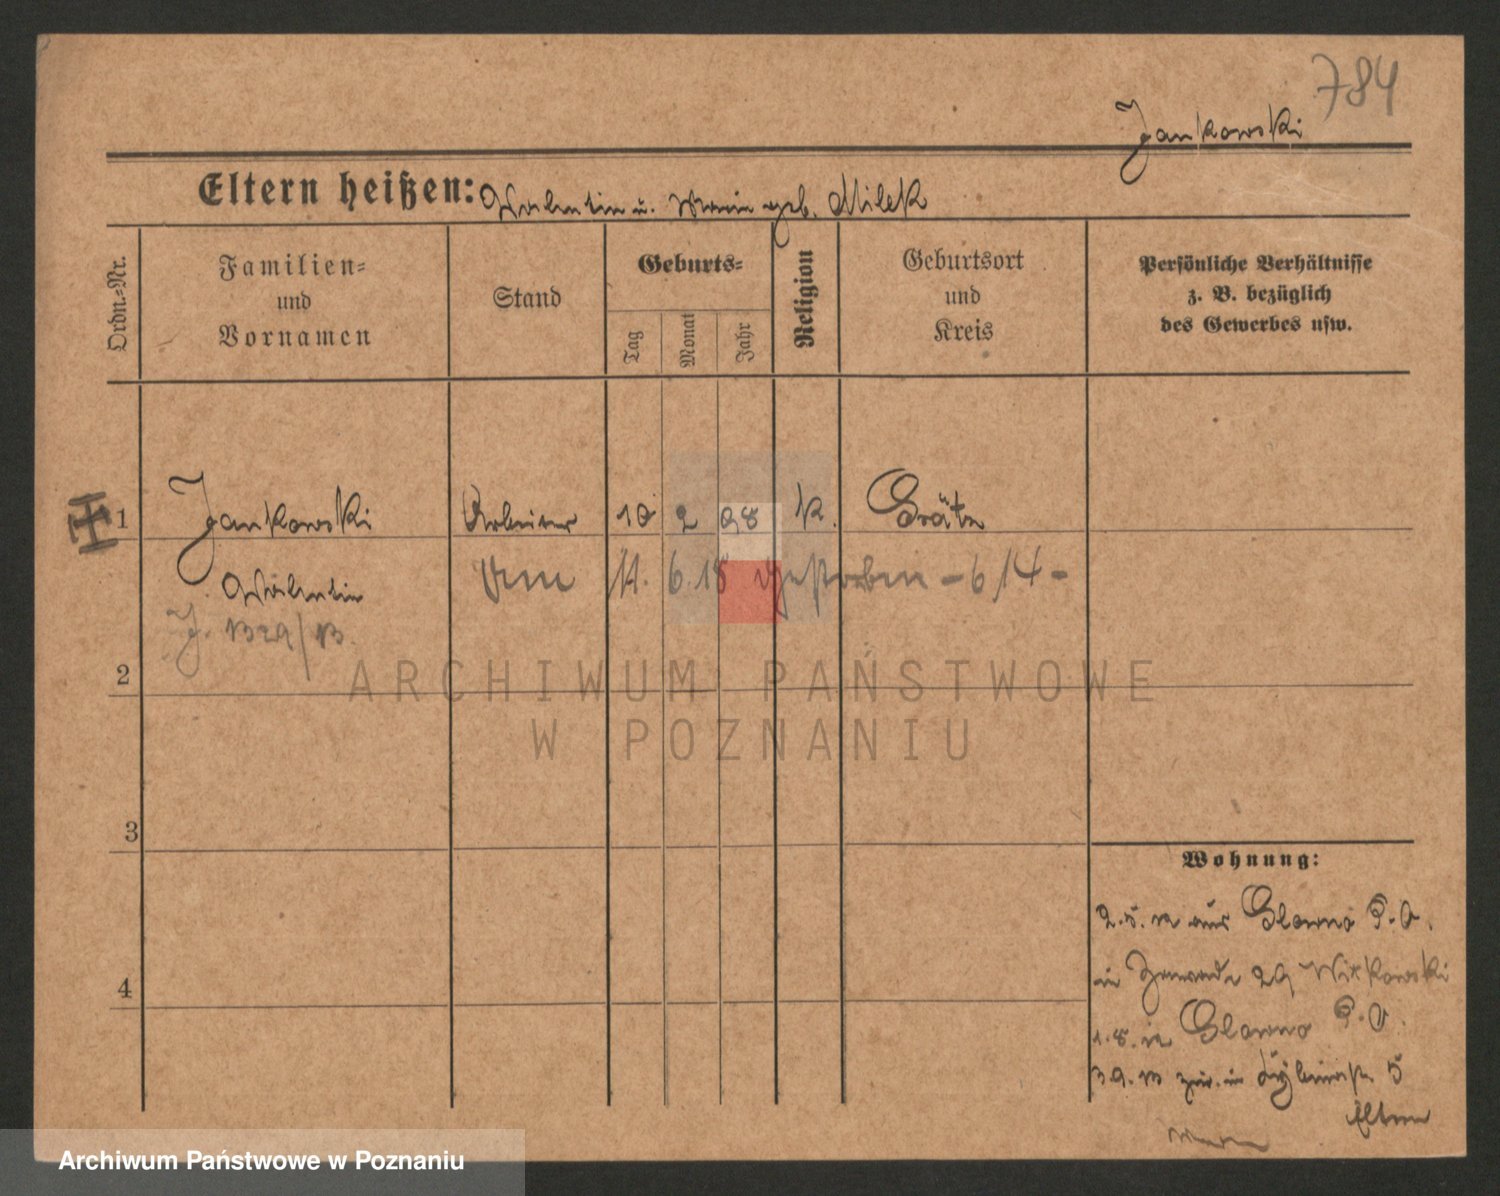 784
Jankowski
Eltern heißen: Valentin u. Marie geb. Milek
Ordn.=Nr.
Familien=
und
Vornamen
Stand
Geburts=
Tag
Monat
Jahr
Religion
Geburtsort
und
Kreis
Persönliche Verhältnisse
z. B. bezüglich
des Gewerbes usw.
1 Jankowski Arbeiter 10 2 98 k. Grätz
Valentin
Am 11. 6. 18 gestorben - 614 -
J.
2
ARCHIWUM PAŃSTWOWE
W POZNANIU
3
4
Wohnung:
2.5. aus Glowno P.O.
in 29 Witkowski
1.8. in Glowno P.O.
zur. in 5
Eltern
Archiwum Państwowe w Poznaniu